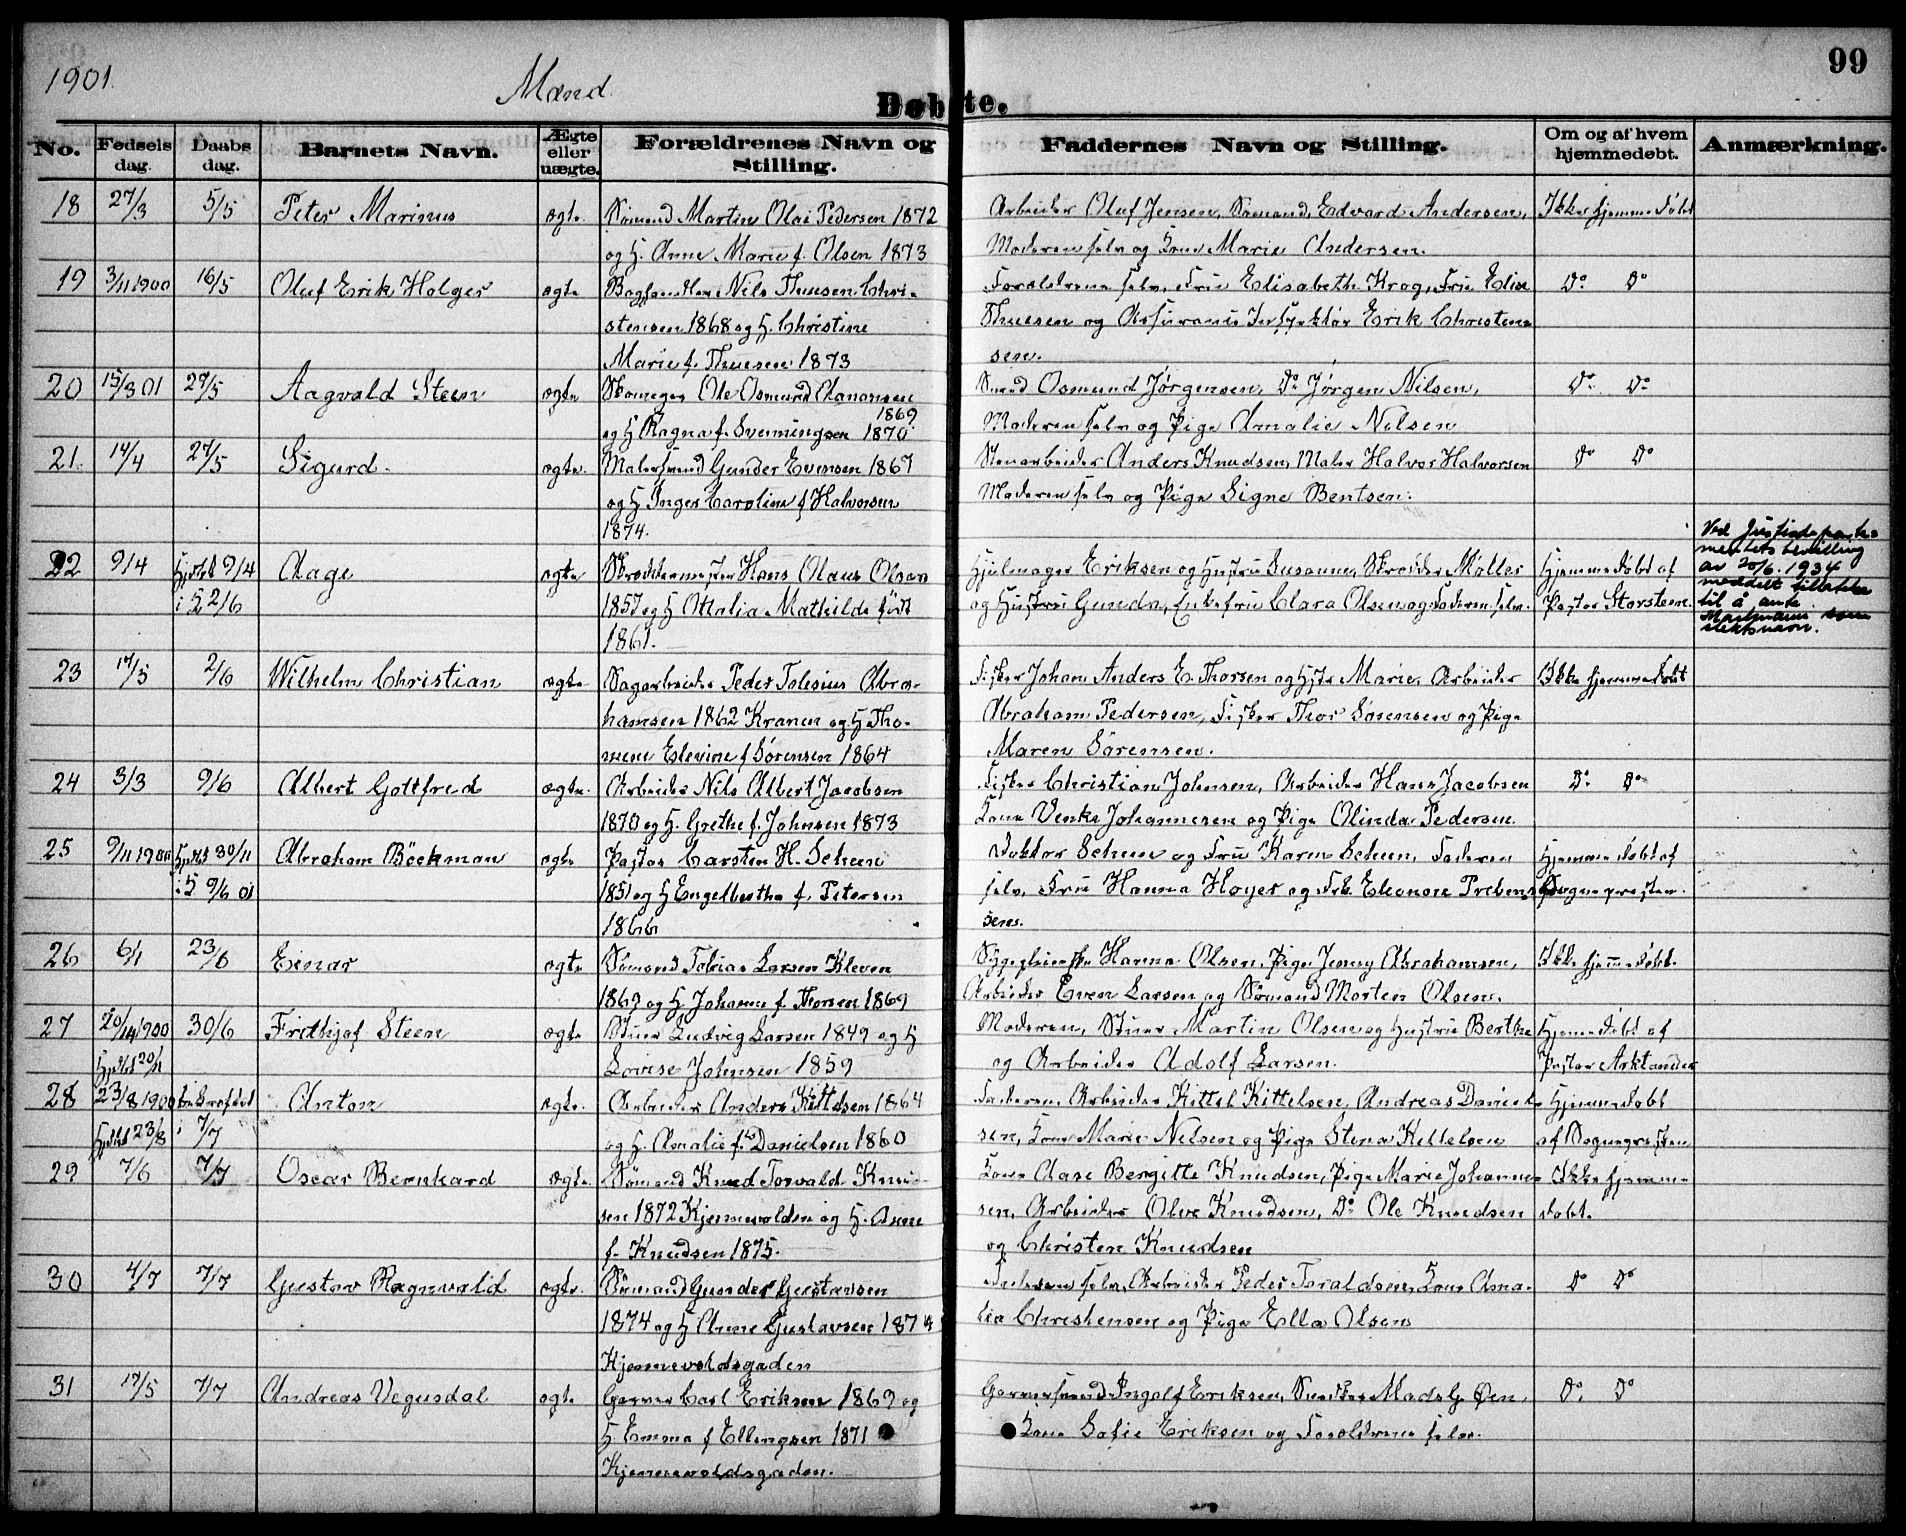 1901.
Mænd.
99
Døbte.
No. Fødsels dag. Daabs dag. Barnets Navn. Ægte eller uægte. Forældrenes Navn og Stilling. Faddernes Navn og Stilling. Om og af hvem hjemmedøbt. Anmærkning.
18 27/3 5/5 Peter Marinus ægte. Sømand Martin Olai Pedersen 1872 Arbeider Oluf Jensen, Sømand Edvard Andersen, Ikke hjemmedøbt
og H. Anne Marie f. Olsen 1873 Moderen selv og Kone Marie Andersen.
19 3/11 1900 16/5 Oluf Erik Holger ægte Boghandler Nils Thuesen Chri- Forældrene selv, Fru Elisabeth Krog, Fru Elise Do Do
stensen 1868 og H. Christine Thuesen og Assurance Inspektør Erik Christen-
Marie f. Thuesen 1873 sen.
20 15/3 01 27/5 Aagvald Steen ægte Skomager Ole Osmund Aanonsen Smed Osmund Jörgensen, Do Jørgen Nilsen, Do Do
1869
og H Ragna f. Svenningsen 1870 Moderen selv og Pige Amalie Nilsen
21. 14/4 27/5 Sigurd. ægte. Malersvend Gunder Evensen 1867 Stenarbeider Anders Knudsen, Maler Halvor Halvorsen Do Do
og H Inger Caroline f Halvorsen Moderen selv og Pige Signe Bentsen.
1874.
22 9/4 Hjdbt 9/4 Aage ægte Skræddermester Hans Olaus Olsen Hjulmager Eriksen og Hustru Susanne, Skræder Møller Hjemmedøbt af
i K 2/6 1857 og H Othalia Mathilde født og Hustru Gunda, Enkefru Clara Olsen og Faderen selv. Pastor Storsteen.
1861.
Ved Justisdeparte-
mentets bevilling
av 20/6.1934
meddelt tillatelse
til å anta
som
slektsnavn.
23 17/3 2/6 Wilhelm Christian ægte Sagarbeider Peder Tolesius Abra- Fisker Johan Anders E. Thorsen og Hstr Marie, Arbeider Ikke hjemmedøbt
hamsen 1862 Kranen og H Tho- Abraham Pedersen, Fisker Thor Sørensen og Pige
mine Elevine f Sørensen 1864 Maren Sørensen.
24 3/3 9/6 Albert Gottfred ægte. Arbeider Nils Albert Jacobsen Fisker Christian Johnsen, Arbeider Hans Jacobsen Do Do
1870 og H. Grethe f. Johnsen 1873 Kone Venke Johannesen og Pige Olinda Pedersen.
25 9/11 1900 Hjdbt 30/11 Abraham Böckman ægte Pastor Carsten H. Scheen Doktor Scheen og Fru Karen Scheen, Faderen Hjemmedøbt af
i K 9/6 01 1851 og H Engelbertha f. Petersen selv, Fru Hanna Høyer og Frk. Eleonore Preben- Sognepresten.
1866 sen.
26 6/1 23/6 Einar ægte Sømand Tobias Larsen Kleven Sygepleierske Hanna Olsen, Pige Jenny Abrahamsen, Ikke hjemmedøbt.
1869 og H Johanne f. Thorsen 1869 Arbeider Even Larsen og Sømand Morten Olsen.
27 20/11 1900 30/6 Frithjof Steen ægte Stuer Ludvig Larsen 1849 og H Moderen, Stuer Martin Olsen og Hustru Berthe Hjemmedøbt af
Hjdbt 20/11 Lovise Johnsen 1859 og Arbeider Adolf Larsen. Pastor Arktander
28 23/8 1900 bekræftet Anton ægte. Arbeider Anders Kittelsen 1864 Faderen, Arbeider Kittel Kittelsen, Andreas Daniel- Hjemmedøbt
Hjdbt 23/8 i 7/7 og H. Amalie f. Danielsen 1860 sen, Kone Marie Nilsen og Pige Stena Kittelsen af Sognepresten
29 7/6 7/7 Oscar Bernhard ægte. Sømand Knud Torvald Knud- Kone Aase Bergitte Knudsen, Pige Marie Johanne- Ikke hjemme-
sen 1872 Kjennevolden og H. Anne sen, Arbeider Olve Knudsen, Do Ole Knudsen døbt.
f. Knudsen 1875. og Christen Knudsen
30 4/7 7/7 Gustav Ragnvald ægte. Sømand Gunder Gustavsen Faderen selv, Arbeider Peder Toraldsen, Kone Ama- Do Do
1874 og H Anne Gustavsen 1874 lia Christensen og Pige Ella Olsen
Kjennevoldsgaden
31 17/5 7/7 Andreas Vegusdal ægte Garver Carl Eriksen 1869 og Garversvend Ingolf Eriksen, Snedker Mads G. Øen, Do Do
H Emma f Ellingsen 1871 Kone Sofie Eriksen og Forældrene selv.
Kjennevoldsgaden.